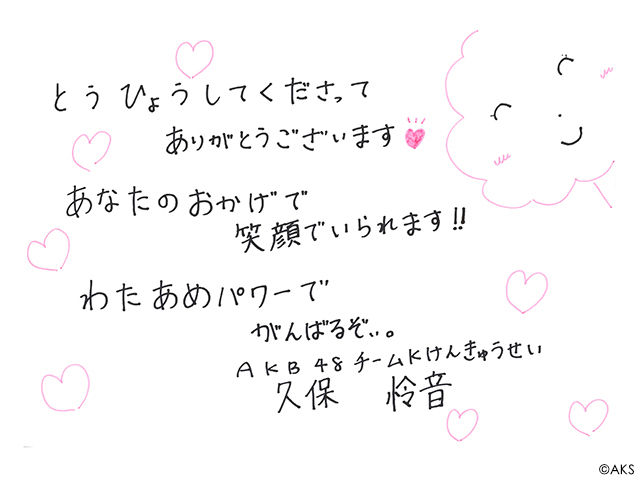 とうひょうしてくださって
ありがとうございます
あなたのおかげで
笑顔でいられます!!
わたあめパワーで
がんばるぞ...。
AKB48チームKけんきゅうせい
久保 怜音
©AKS